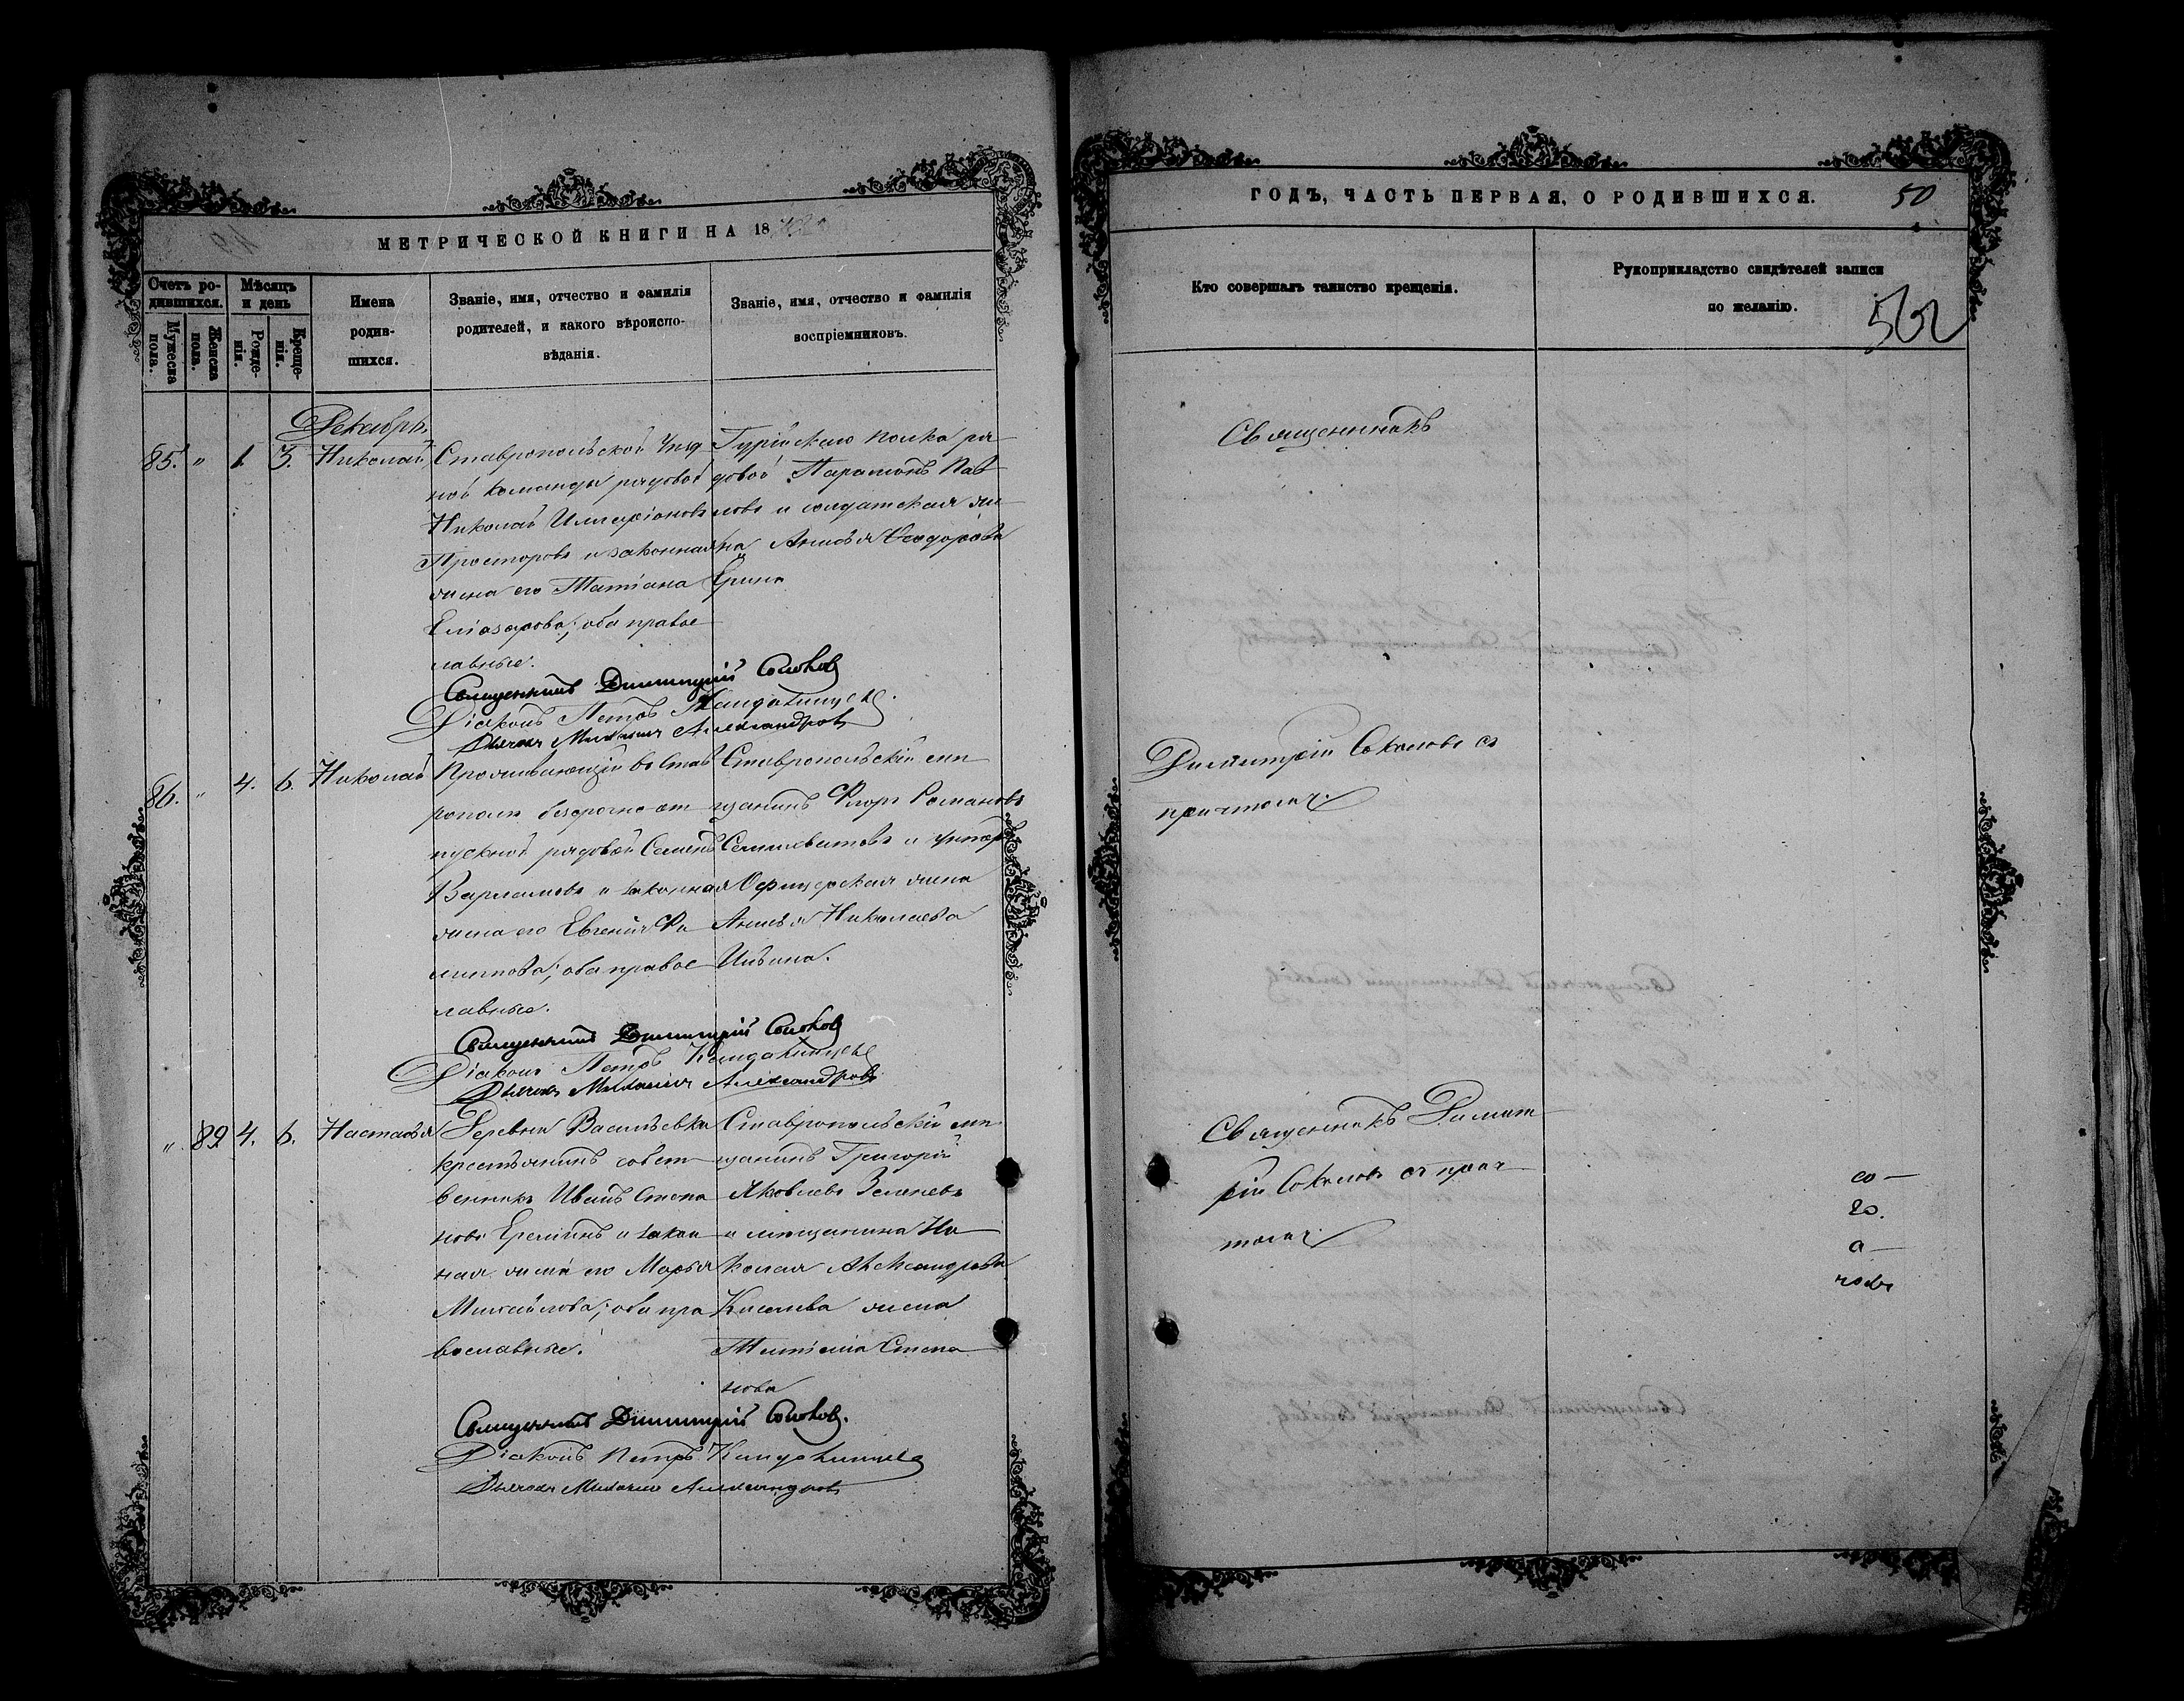 МЕТРИЧЕСКОЙ КНИГИ НА 18
Счетъ ро-
дившихся.
Мужеска
пола.
Женска
пола.
Мѣсяцъ
и день
Рожде-
нія.
Креще-
нія.
Имена
родив-
шихся.
Званіе, имя, отчество и фамилія
родителей, и какого вѣроиспо-
вѣданія.
Званіе, имя, отчество и фамилія
воспріемниковъ.
Декабрь.
85. " 1. 3. Николай
Ставропольской Уѣзд
ной команды рядовой
Николай Илларіоновъ
Просторовъ и законная
жена его Татіана
Елеазарова; оба правос
лавные.
Гурійскаго полка ря
довой Парамонъ Пав
ловъ и солдатская же
на Анисья Ѳеодорова
Священникъ Димитрій Соколов
Діаконъ Петръ
Дьячекъ Михаилъ Александровъ
86. " 4. 6. Николай
Проживающій въ Став
рополѣ безсрочно от
пускной рядовой Семенъ
Варламовъ и законная
жена его Евгенія Фи
липпова; оба правос
лавные.
Ставропольскій мѣ
щанинъ Флоръ Романовъ
и унтеръ
Офицерская жена
Анисья Николаева
Священникъ Димитрій Соколов
Діаконъ Петръ
Дьячекъ Михаилъ Александровъ
" 89. 4. 6. Настасья
Деревни Васильевки
крестьянинъ собст
венникъ Иванъ Степа
новъ Ереминъ и закон
ная жена его Марья
Михайлова; оба пра
вославные.
Ставропольскій мѣ
щанинъ Григорій
Яковлевъ Зеленевъ
и мѣщанина Ни
колая Александрова
Киселева жена
Татіана Степа
нова
Священникъ Димитрій Соколов.
Діаконъ Петръ
Дьячекъ Михаилъ Александровъ
ГОДЪ, ЧАСТЬ ПЕРВАЯ, О РОДИВШИХСЯ.
50
Кто совершалъ таинство крещенія.
Рукоприкладство свидѣтелей записи
по желанію.
562
Священникъ
Димитрій Соколовъ съ
причтомъ.
Священникъ Димит
рій Соколовъ съ прич
томъ.